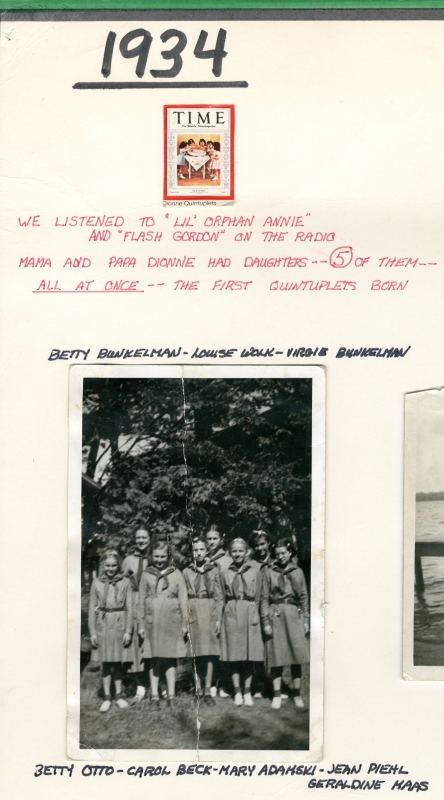 1934
TIME
Dionne Quintuplets
WE LISTENED TO "LIL' ORPHAN ANNIE"
AND "FLASH GORDON" ON THE RADIO
MAMA AND PAPA DIONNE HAD DAUGHTERS -- 5 OF THEM --
ALL AT ONCE -- THE FIRST QUINTUPLETS BORN
BETTY BUNKELMAN - LOUISE WOLK - VIRGIE BUNKELMAN
BETTY OTTO - CAROL BECK - MARY ADAMSKI - JEAN PIEHL
GERALDINE MAAS